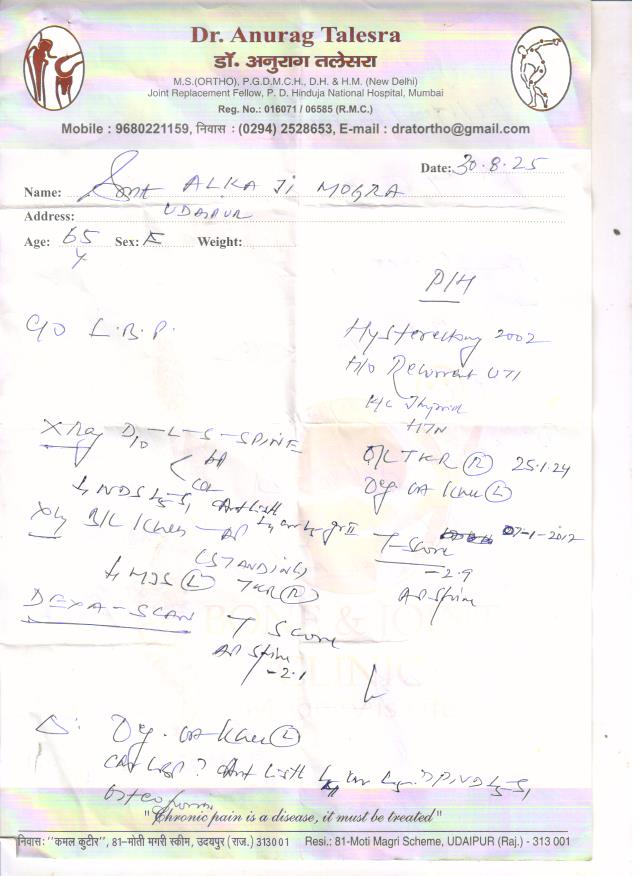 Dr. Anurag Talesra
डॉ. अनुराग तलेसरा
M.S.(ORTHO), P.G.D.M.C.H., D.H. & H.M. (New Delhi)
Joint Replacement Fellow, P. D. Hinduja National Hospital, Mumbai
Reg. No.: 016071 / 06585 (R.M.C.)
Mobile : 9680221159, निवास : (0294) 2528653, E-mail : dratortho@gmail.com
Date: 30.8.25
Name: Smt ALKA JI MOGRA
Address: UDAIPUR
Age: 65 Y Sex: F Weight:
P/H
C/O L.B.P.
Hysterectomy 2002
H/O Recurrent UTI
K/C Thyroid
HTN
X Ray D10-L-S-SPINE
AP
O/C TKR (R) 25.1.24
Deg OA Knee (L)
NDS L5-S1
X Ray B/L Knee - AP
(STANDING)
T-Score 07-1-2012
-2.9
AP Spine
MJS (L) TKR (R)
DEXA-SCAN T Score
AP Spine
-2.1
BONE & JOINT
CLINIC
Δ: Deg. OA Knee (L)
L5-S1
"Chronic pain is a disease, it must be treated"
निवास: "कमल कुटीर", 81-मोती मगरी स्कीम, उदयपुर (राज.) 313001 Resi.: 81-Moti Magri Scheme, UDAIPUR (Raj.) - 313 001